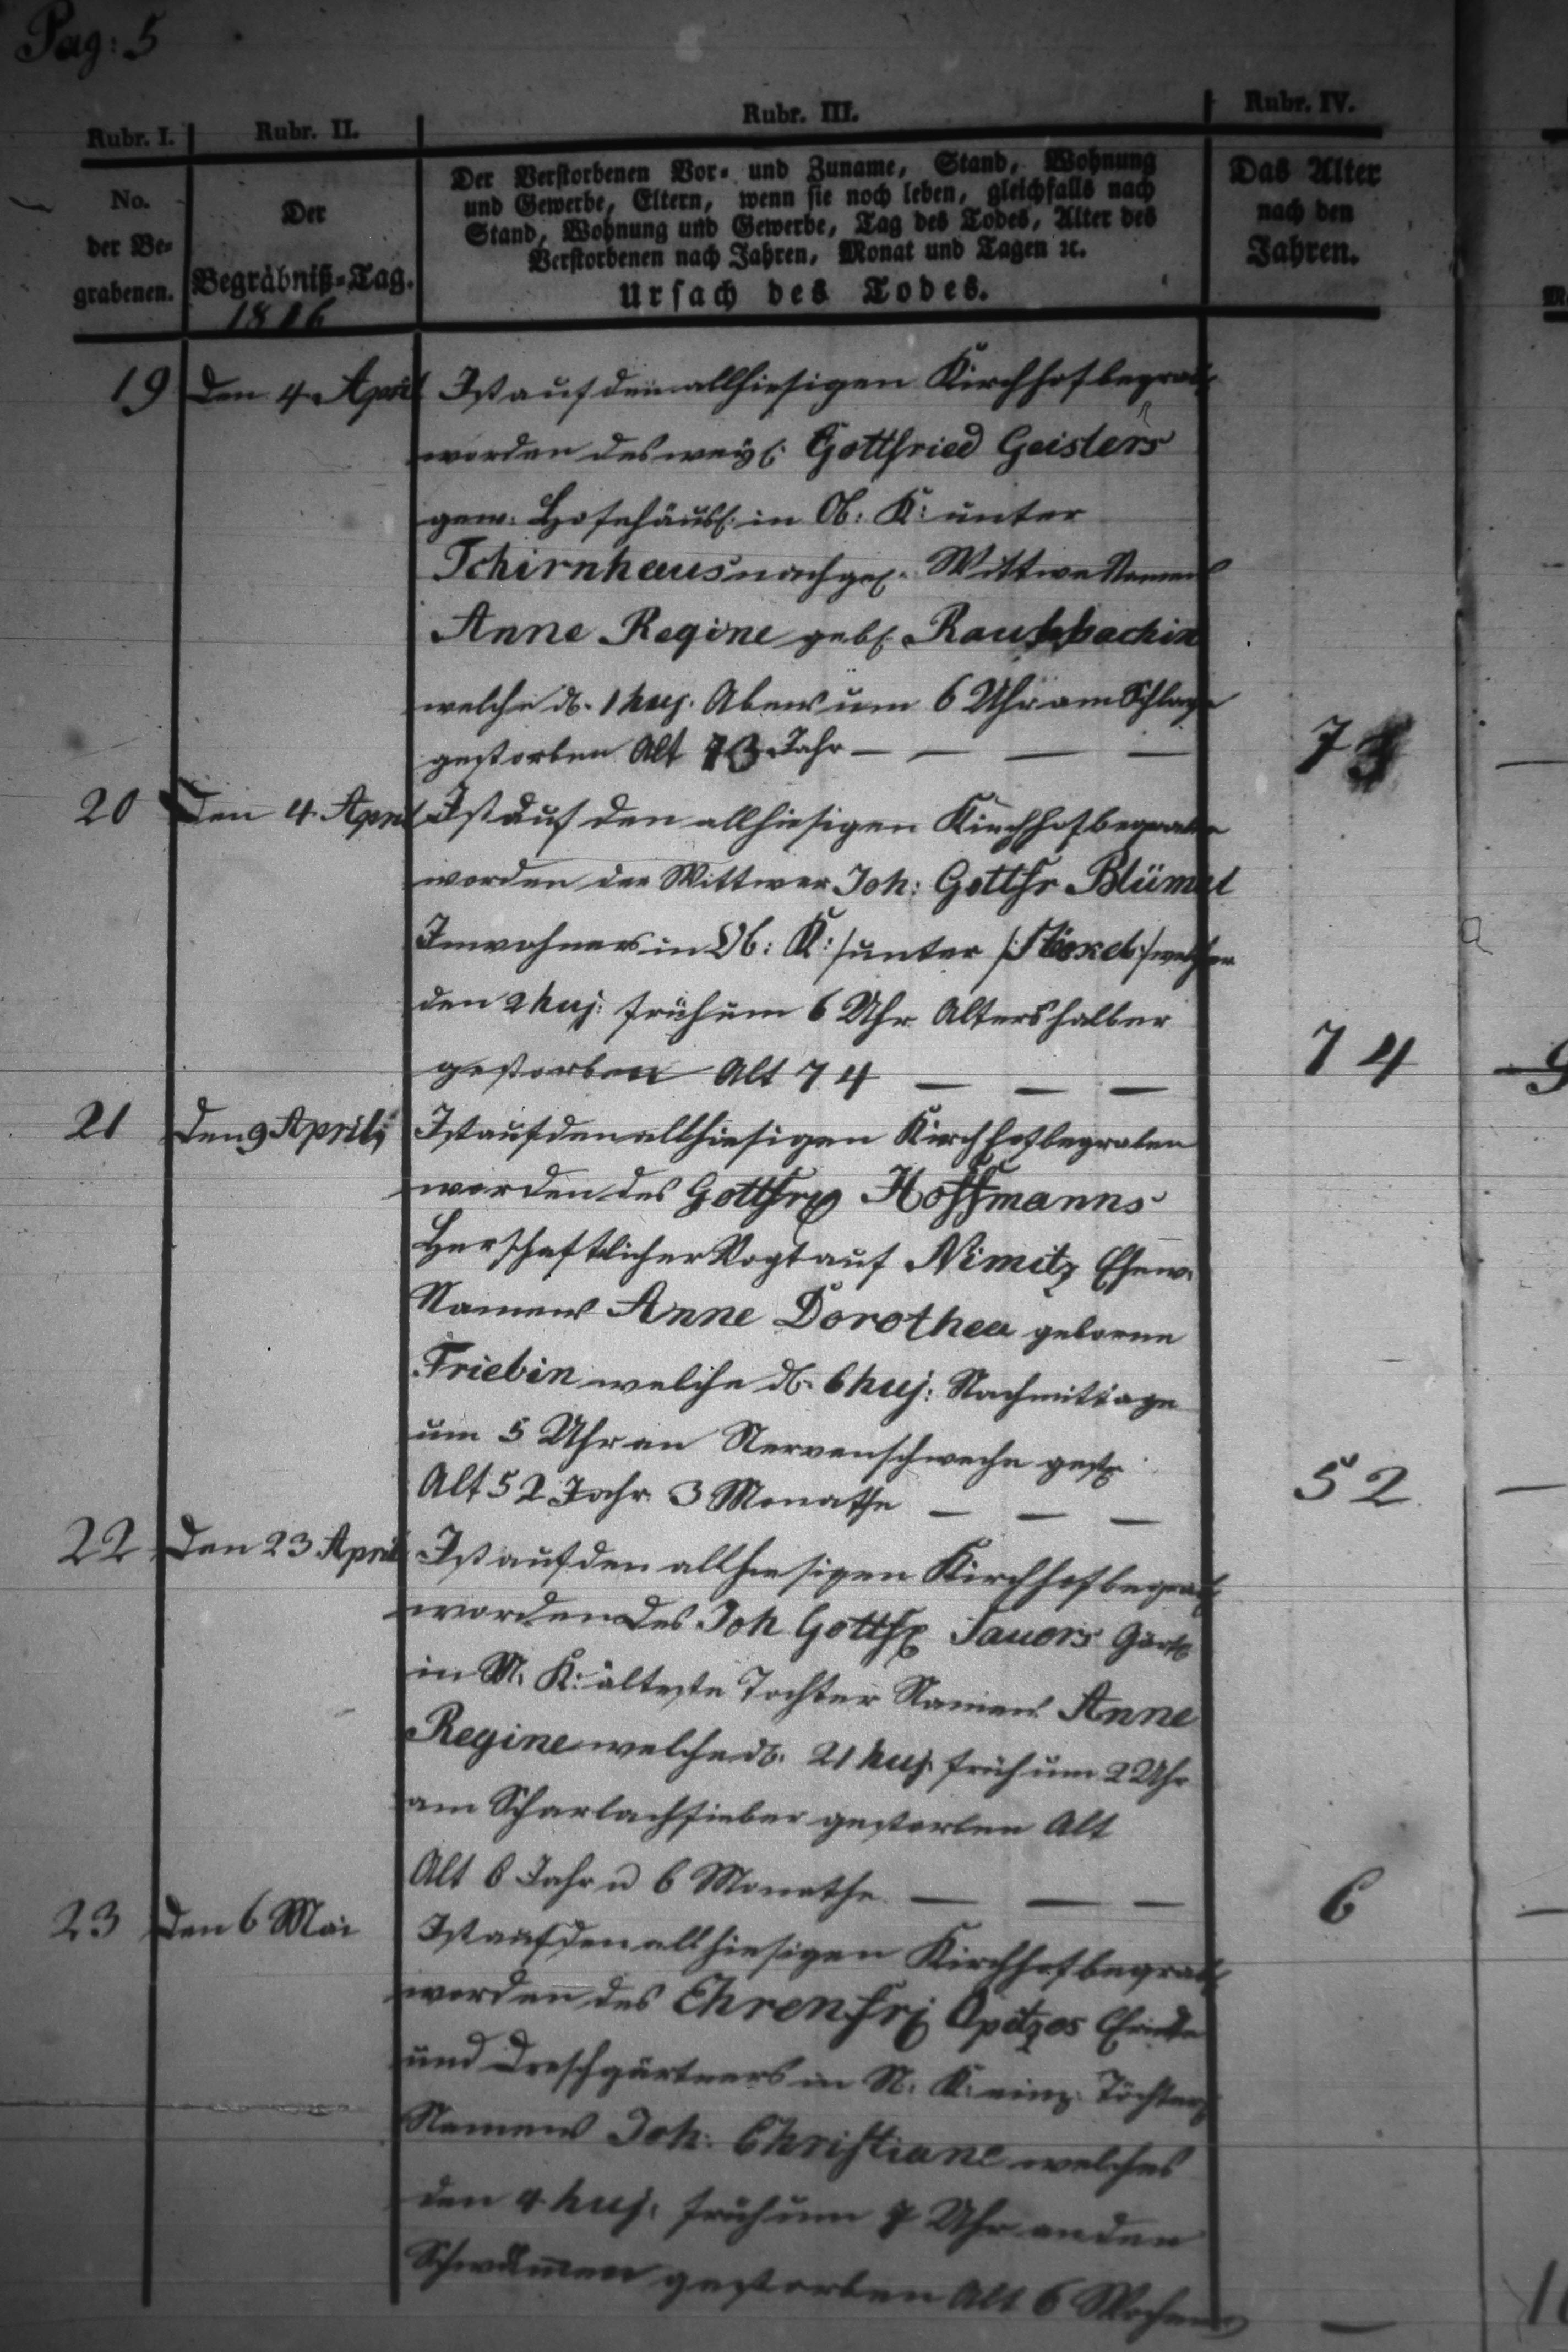 Pag: 5
Rubr. I. Rubr. II. Rubr. III. Rubr. IV.
No. der Be-grabenen.
Der Begräbniß-Tag.
1816
Der Verstorbenen Vor- und Zuname, Stand, Wohnung
und Gewerbe, Eltern, wenn sie noch leben, gleichfalls nach
Stand, Wohnung und Gewerbe, Tag des Todes, Alter des
Verstorbenen nach Jahren, Monat und Tagen ꝛc.
Ursach des Todes.
Das Alter
nach den
Jahren.
19 den 4. April Ist auf den allhiesigen Kirchhof begrab
worden des weyl: Gottfried Geislers
gew: Hofehäusl: in Ob: K: unter
Tschirnhaus nachgel. Wittwe Namens
Anne Regine geb: Raupbachin
welche d. 1 huj. Abends um 6 Uhr am Schlage
gestorben Alt 73 Jahr — — — — 73
20 Den 4. April Ist auf den allhiesigen Kirchhof begraben
worden der Wittwer Joh: Gottfr Blümel
Inwohner in Ob: K: /unter welcher
den 2 huj: früh um 6 Uhr Altershalber
gestorben Alt 74 — — — 74
21 Den 9 April Ist auf den allhiesigen Kirchhof begraben
worden des Gottfry Hoffmanns
Herschaftlicher Vogt auf Nimitz Ehew:
Namens Anne Dorothea geborne
Friebin welche d. 6 huj: Nachmittage
um 5 Uhr an Nervenschweche gest:
Alt 52 Jahr 3 Monathe — — — 52
22 Den 23 April Ist auf den allhiesigen Kirchhof begrab
worden des Joh Gottfr Jauers Gärt:
in N. K: älteste Tochter Namens Anne
Regine welche d. 21 huj. früh um 2 Uhr
am Scharlachfieber gestorben Alt
Alt 6 Jahr u 6 Monathe — — — 6
23 Den 6 Mai Ist auf den allhiesigen Kirchhof begrab
worden des Ehrenfr Opitzes
und Dreschgärtners in N. K: einz: Töchter:
Namens Joh: Christiane welches
den 4 huj. früh um 7 Uhr an den
gestorben Alt 6 Wochen —